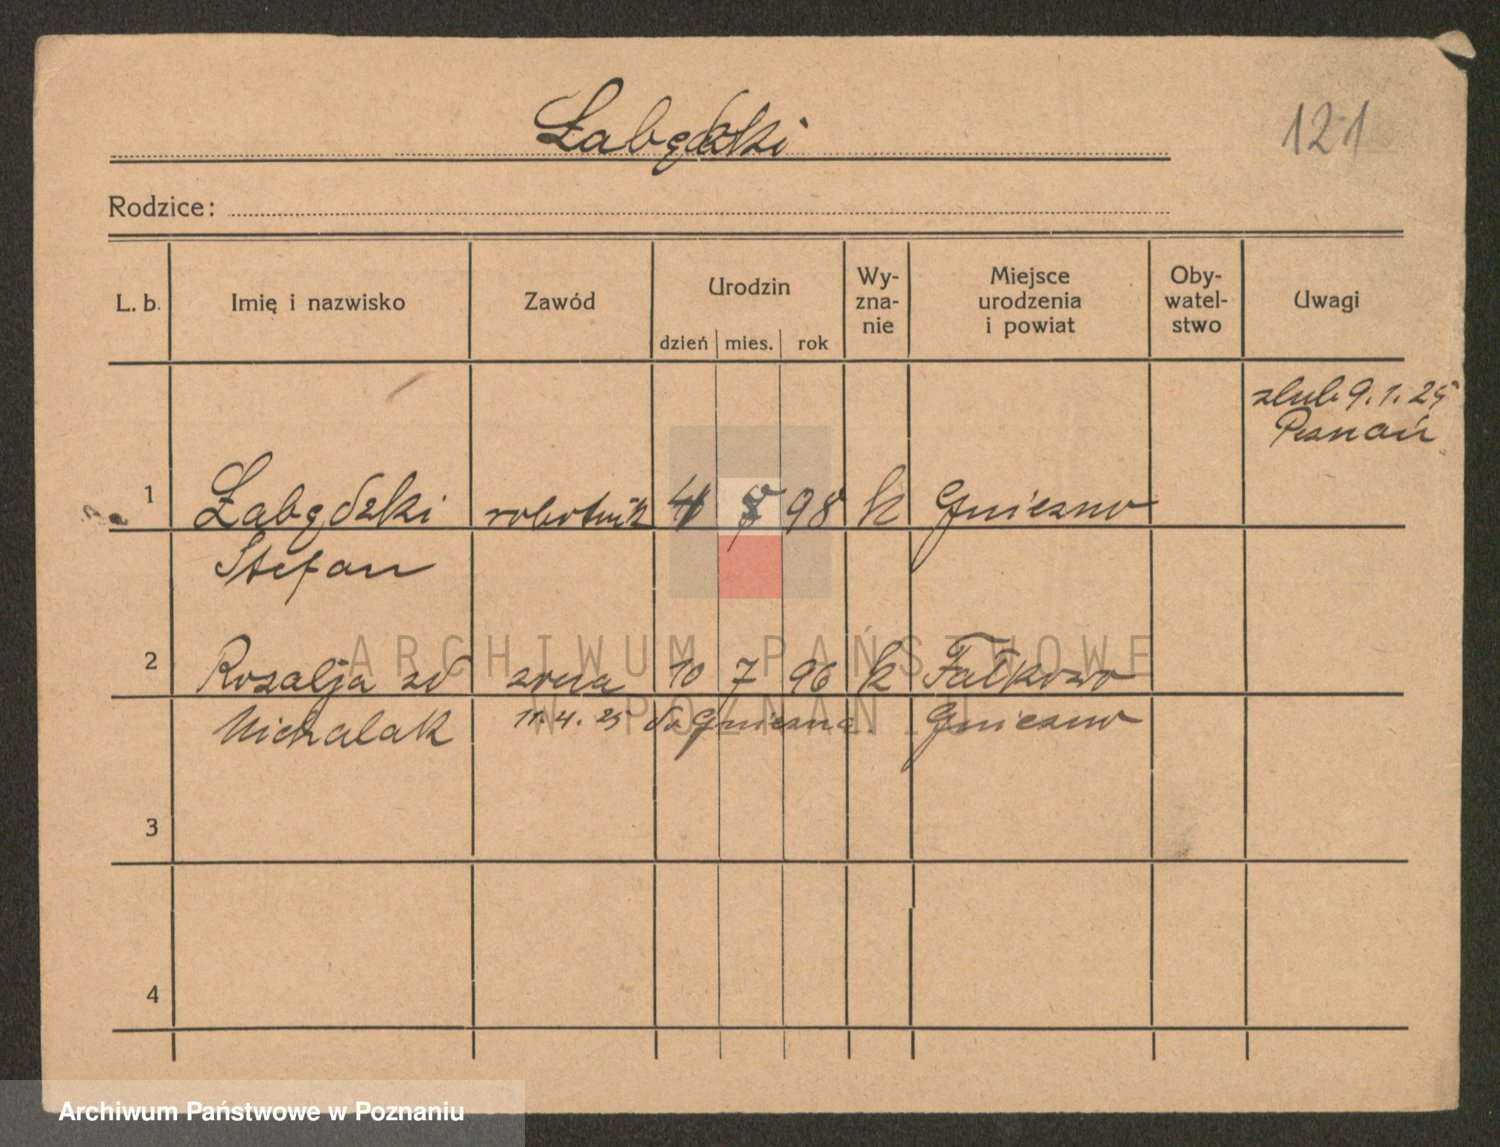 Łabędzki
121
Rodzice:
L. b.
Imię i nazwisko
Zawód
Urodzin
dzień mies. rok
Wy-
zna-
nie
Miejsce
urodzenia
i powiat
Oby-
watel-
stwo
Uwagi
ślub 9.1.25
Poznań
1 Łabędzki robotnik 4 98 k Gniezno
Stefan
2 Rozalja zd żona 10 7 96 k Fałkowo
Michalak 11.4.25 do Gniezna. Gniezno
3
4
ARCHIWUM PAŃSTWOWE
W POZNANIU
Archiwum Państwowe w Poznaniu